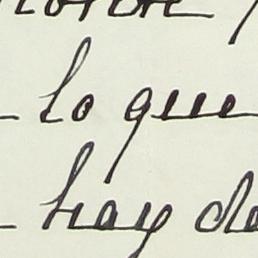 lo que
hay de